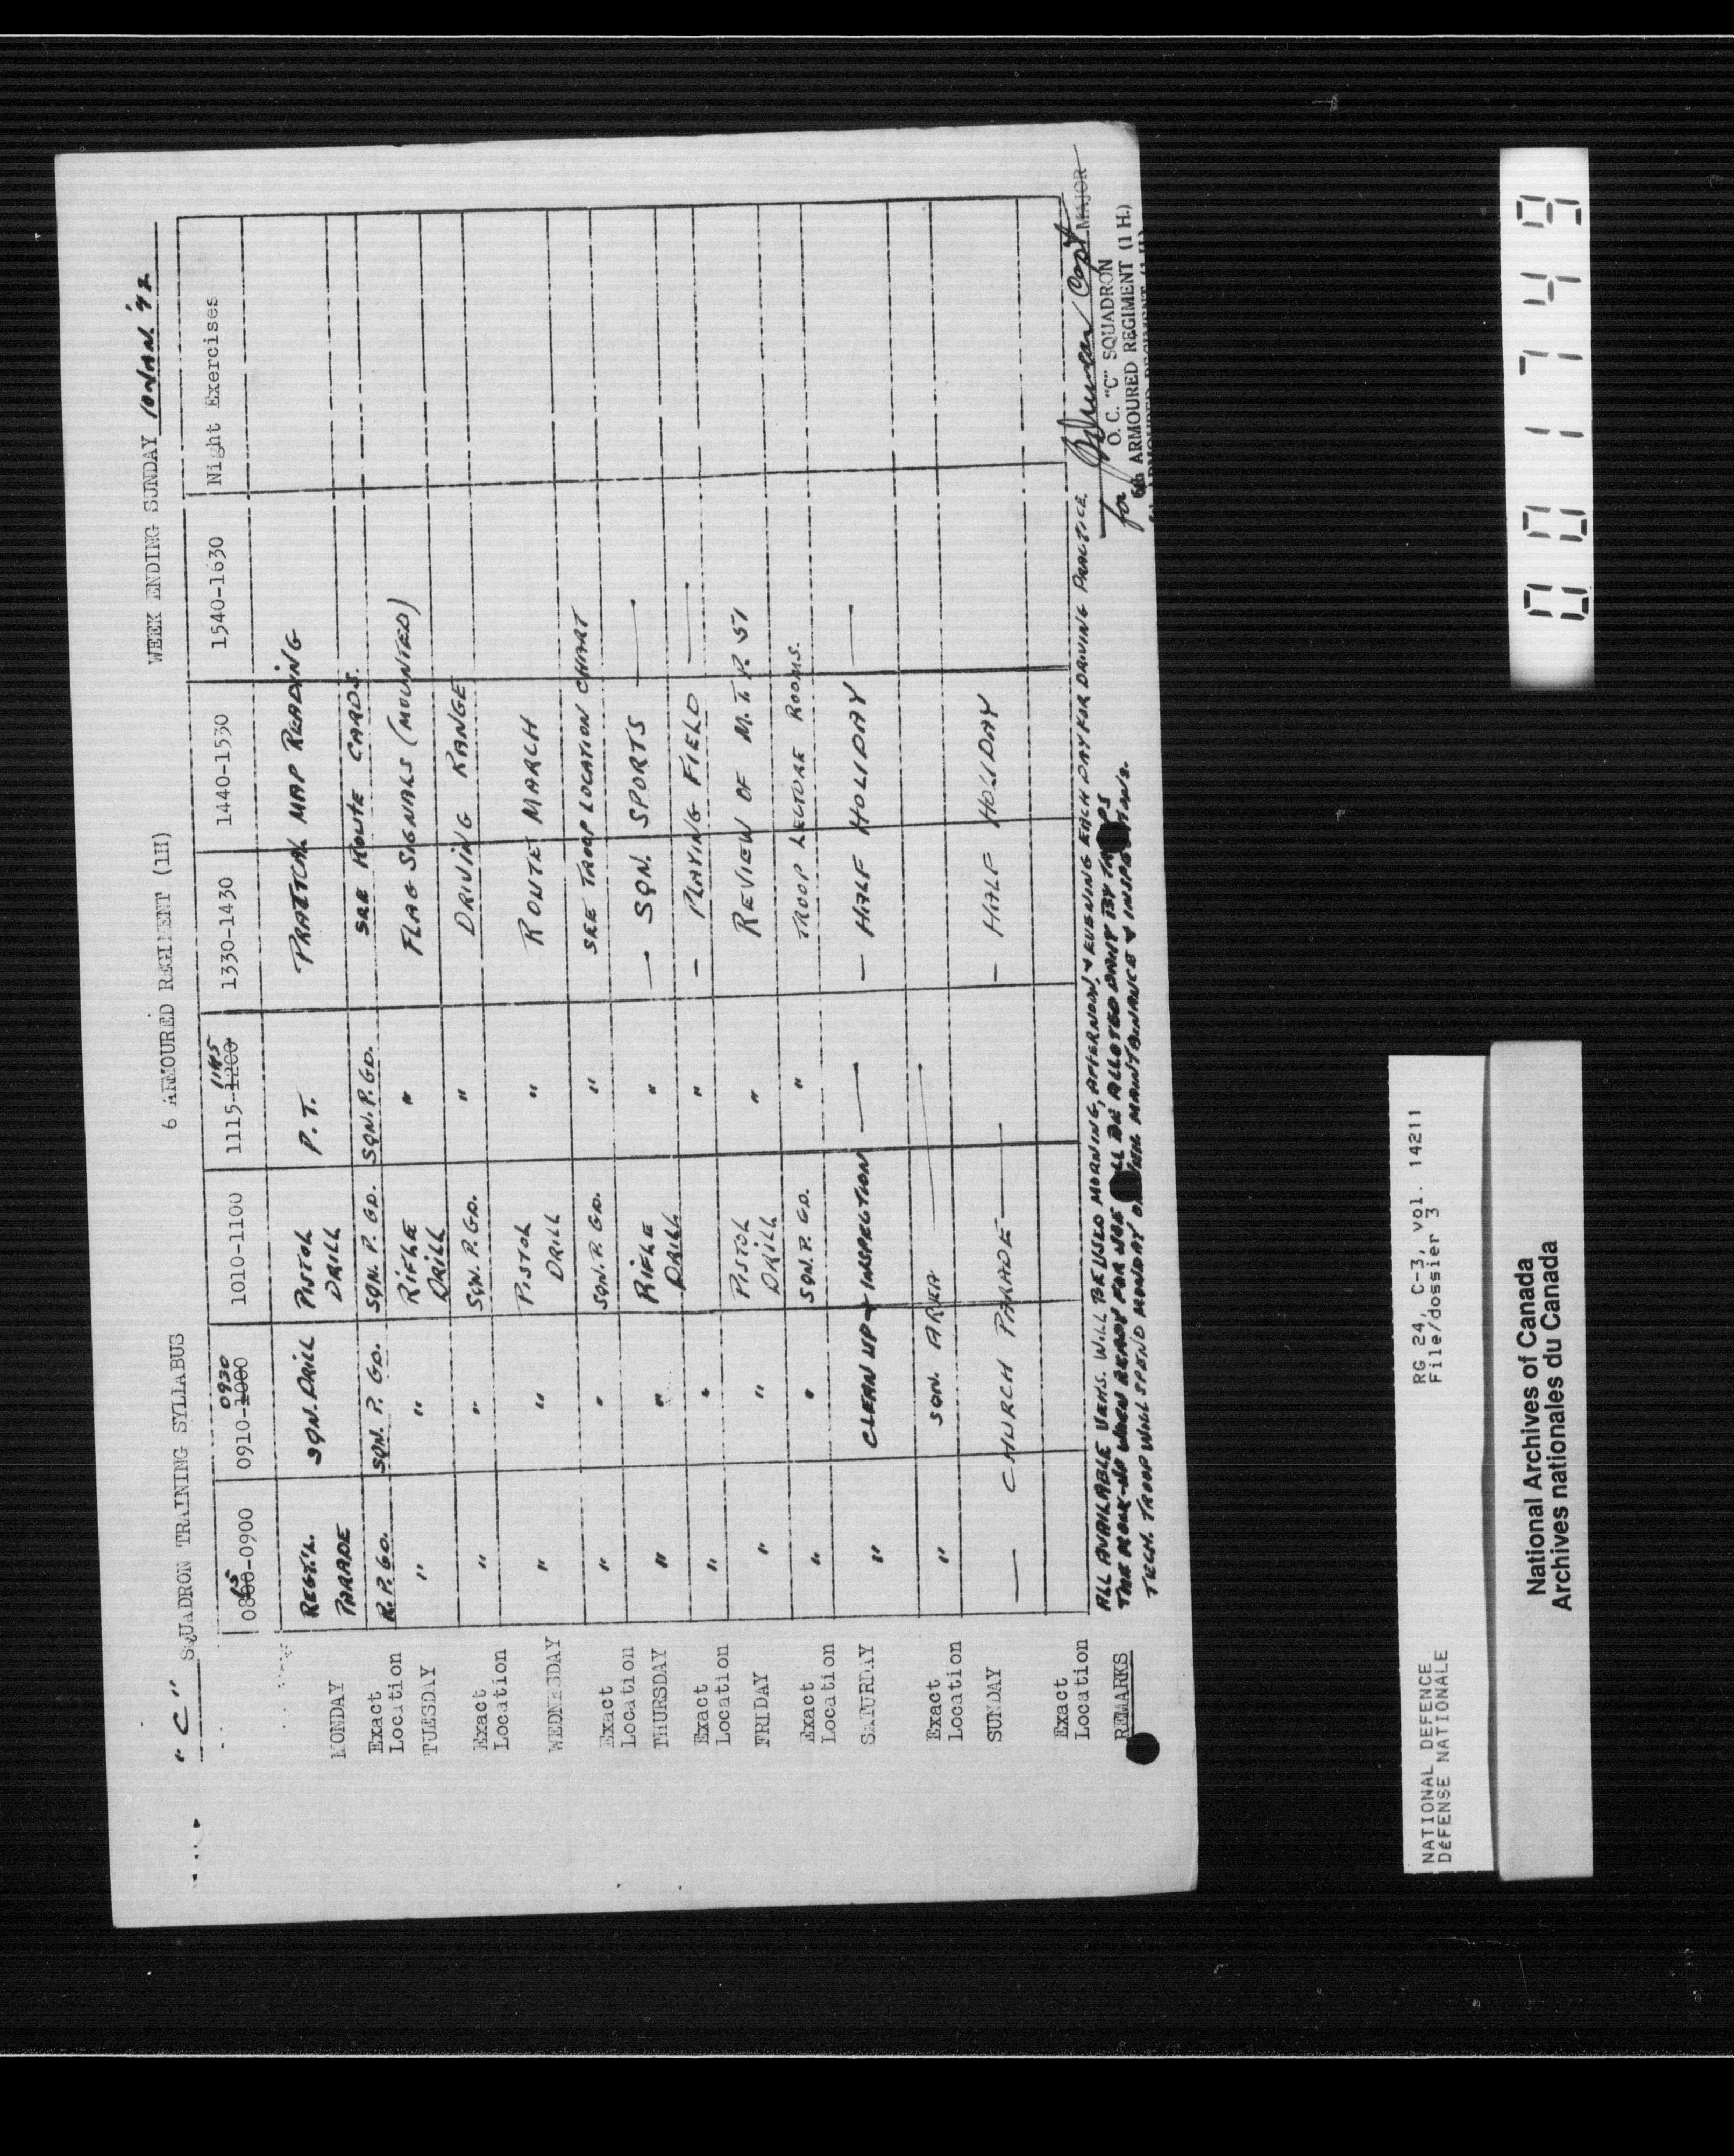 "C" SQUADRON TRAINING SYLLABUS 6 ARMOURED REGIMENT (1H) WEEK ENDING SUNDAY
0800-0900 0910-1000 0930 1010-1100 1115-1200 1145 1330-1430 1440-1530 1540-1630 Night Exercises
MONDAY REGT'L PARADE SQN. DRILL PISTOL DRILL P.T. MAP READING
Exact Location R.P.GD. SQN. P. GD. SQN. P. GD. SQN. P. GD. SEE ROUTE CARDS.
TUESDAY " " RIFLE DRILL " FLAG SIGNALS (MOUNTED)
Exact Location " " SQN. P. GD. " DRIVING RANGE
WEDNESDAY " " PISTOL DRILL " ROUTE MARCH
Exact Location " " SQN. P. GD. " SEE TROOP LOCATION CHART
THURSDAY " " RIFLE DRILL " — SQN. SPORTS —
Exact Location " " " — PLAYING FIELD —
FRIDAY " " PISTOL DRILL " REVIEW OF M.T.P. 51
Exact Location " " SQN. P. GD. " TROOP LECTURE ROOMS.
SATURDAY " CLEAN UP + INSPECTION — — HALF HOLIDAY —
Exact Location " SQN. AREA —
SUNDAY — CHURCH PARADE — — HALF HOLIDAY
Exact Location
REMARKS ALL AVAILABLE VEHS. WILL BE USED MORNING, AFTERNOON, & EVENING EACH DAY FOR DRIVING PRACTICE.
THE WHEN READY FOR USE BE ALLOTED DAILY BY
TECH. TROOP WILL SPEND MONDAY MAINTAINANCE &
for Capt MAJOR
O. C. "C" SQUADRON
6th ARMOURED REGIMENT (1 H.)
001749
NATIONAL DEFENCE RG 24, C-3, vol. 14211
DÉFENSE NATIONALE File/dossier 3
National Archives of Canada
Archives nationales du Canada